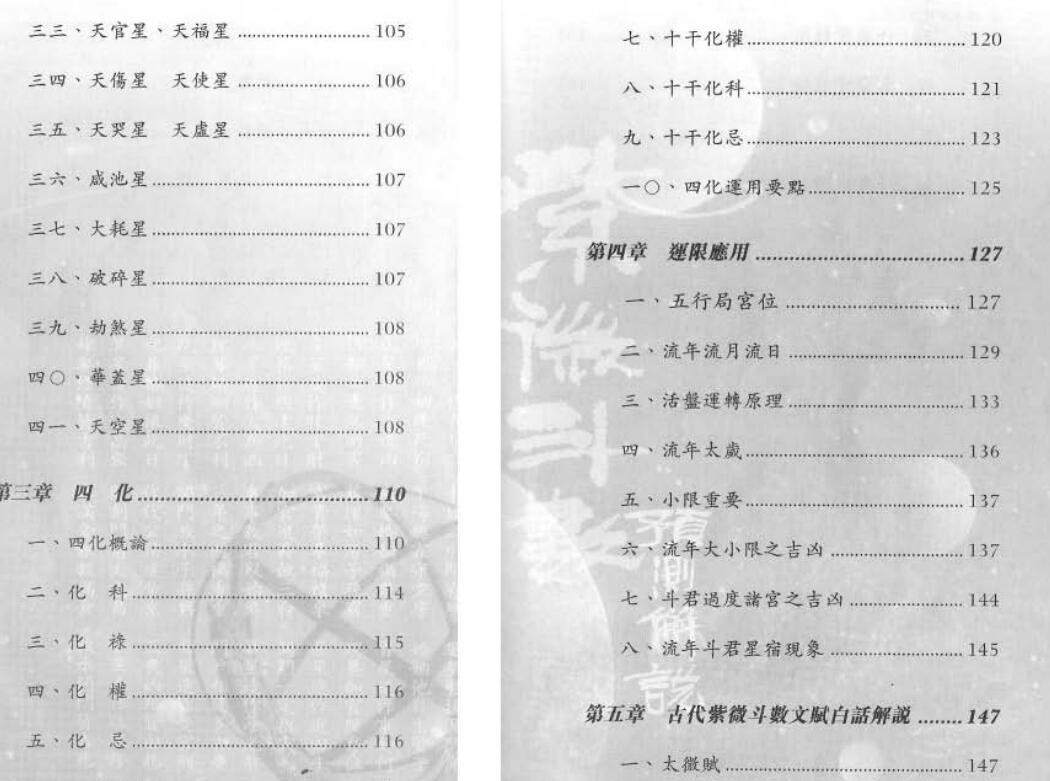 三三、天官星、天福星 ........................... 105
三四、天傷星　天使星 ........................... 106
三五、天哭星　天虛星 ........................... 106
三六、咸池星 ........................... 107
三七、大耗星 ........................... 107
三八、破碎星 ........................... 107
三九、劫煞星 ........................... 108
四〇、華蓋星 ........................... 108
四一、天空星 ........................... 108
第三章　四　化 ........................... 110
一、四化概論 ........................... 110
二、化　科 ........................... 114
三、化　祿 ........................... 115
四、化　權 ........................... 116
五、化　忌 ........................... 116
七、十干化權 ........................... 120
八、十干化科 ........................... 121
九、十干化忌 ........................... 123
一〇、四化運用要點 ........................... 125
第四章　運限應用 ........................... 127
一、五行局宮位 ........................... 127
二、流年流月流日 ........................... 129
三、活盤運轉原理 ........................... 133
四、流年太歲 ........................... 136
五、小限重要 ........................... 137
六、流年大小限之吉凶 ........................... 137
七、斗君過度諸宮之吉凶 ........................... 144
八、流年斗君星宿現象 ........................... 145
第五章　古代紫微斗數文賦白話解說 ........ 147
一、太微賦 ........................... 147
紫微斗數
預測解說